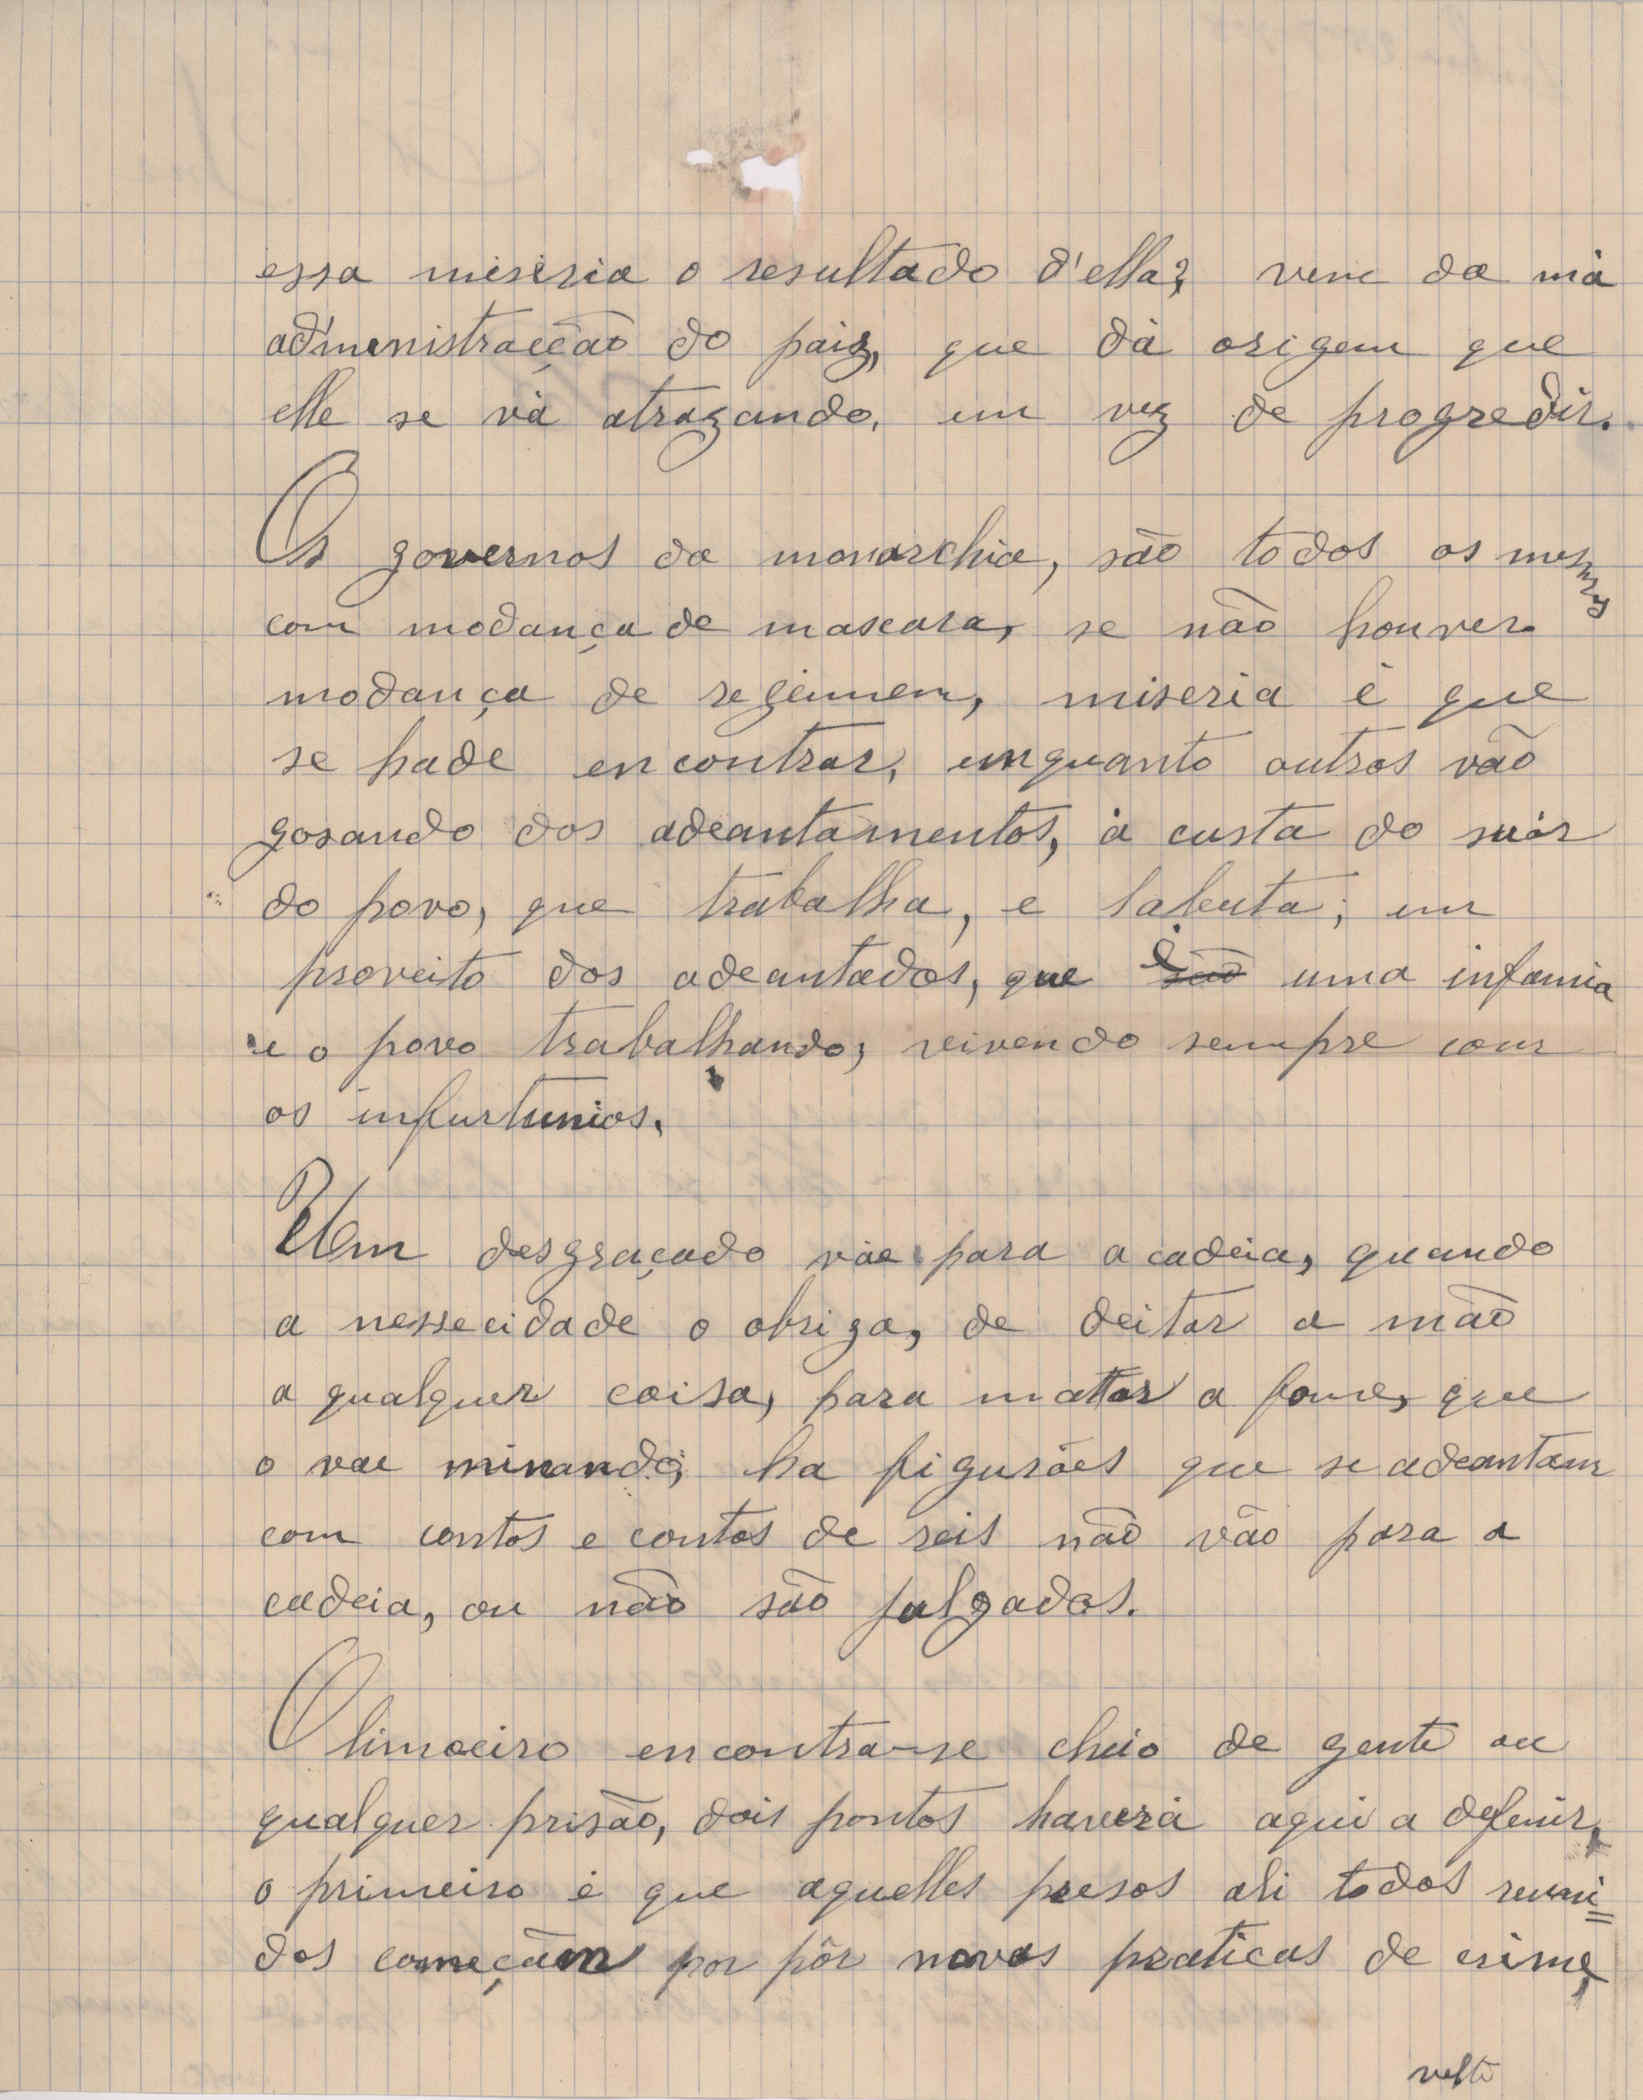 essa miséria o resultado d'ella? vem da má
administracção do paiz, que dá origem que
elle se vá atrazando, em vez de progredir.
Os governos da monarchia, são todos os mesmos
com modança de mascara, se não houver
modança de regimen, miseria é que
se hade encontrar, emquanto outros vão
gosando dos adeantamentos, á custa do suór
do povo, que trabalha, e labuta; em
proveito dos adeantados, que é são uma infamia
e o povo trabalhando, vivendo sempre com
os infurtunios.
Um desgraçado váe para a cadeia, quando
a nessecidade o obriga, de deitar a mão
a qualquer coisa, para matar a fome, que
o vae minando; ha figurões que se adeantam
com contos e contos de reis não vão para a
cadeia, ou não são julgados.
O limoeiro encontra-se cheio de gente ou
qualquer prisão, dois pontos haverá aqui a defenir,
o primeiro é que aquelles presos ali todos reuni=
dos começãm por pôr novas praticas de crime,
volte